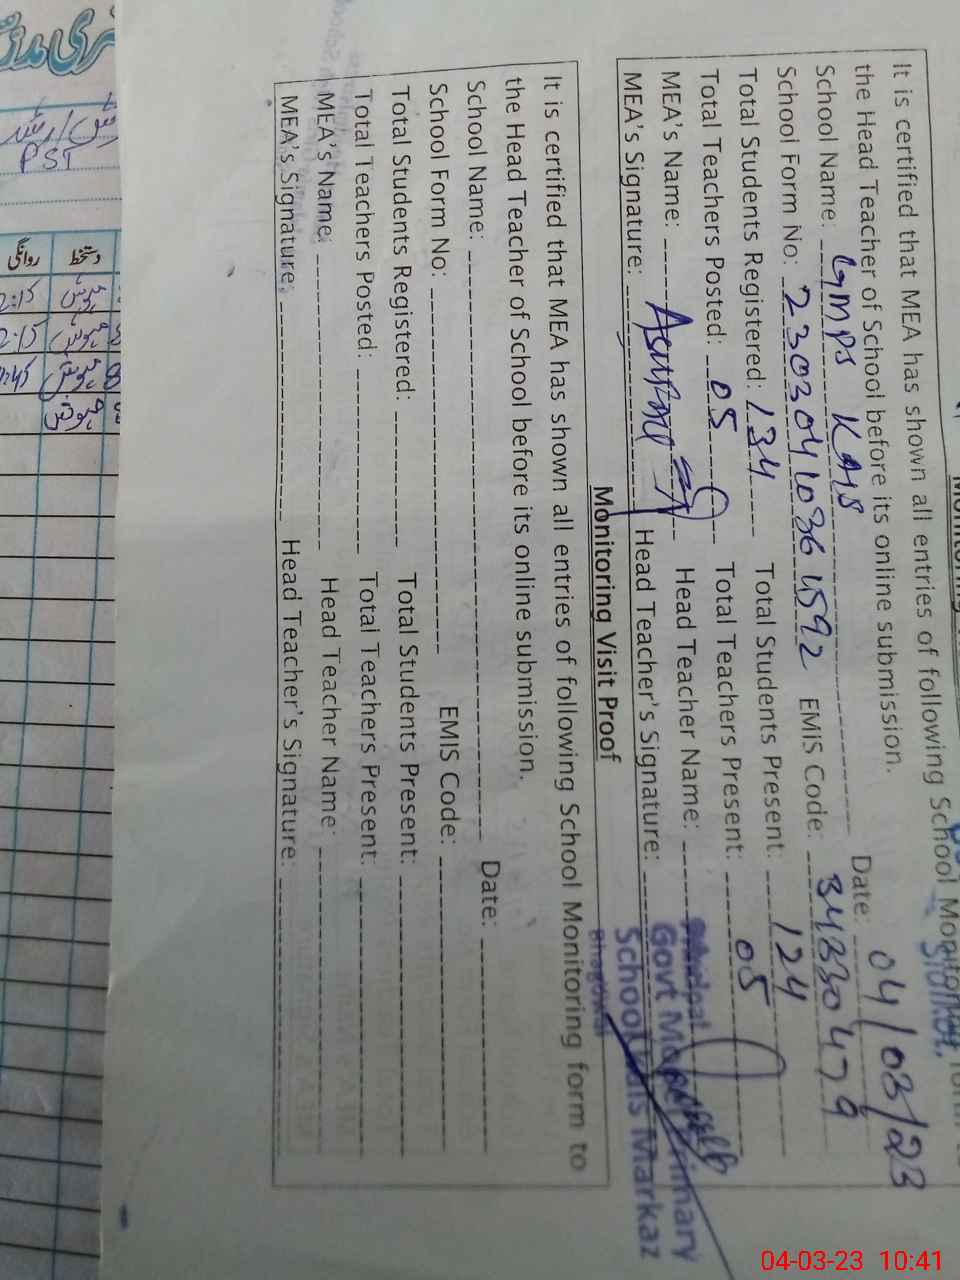 It is certified that MEA has shown all entries of following School Monitoring form to
the Head Teacher of School before its online submission.
School Name: GMPS KAIS Date: 04/03/23
School Form No: 23030410364592 EMIS Code: 34330479
Total Students Registered: 134 Total Students Present: 124
Total Teachers Posted: 05 Total Teachers Present: 05
MEA's Name: Head Teacher Name:
MEA's Signature: Head Teacher's Signature:
Principal
Govt Model Primary
School Kais Markaz
Bhagowal
Sialkot.
Monitoring Visit Proof
It is certified that MEA has shown all entries of following School Monitoring form to
the Head Teacher of School before its online submission.
School Name: Date:
School Form No: EMIS Code:
Total Students Registered: Total Students Present:
Total Teachers Posted: Total Teachers Present:
MEA's Name: Head Teacher Name:
MEA's Signature: Head Teacher's Signature:
PST
دستخط روانگی
04-03-23 10:41